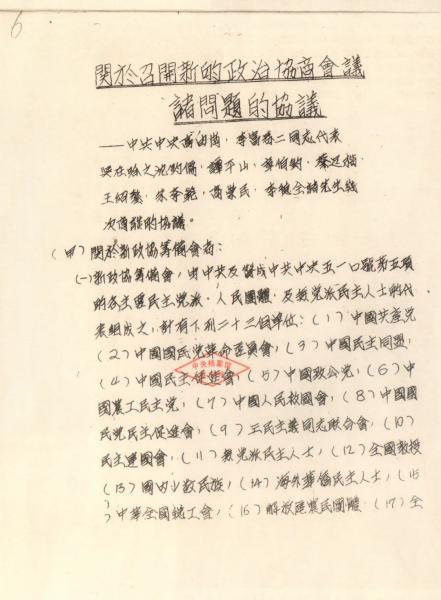 6
關於召開新的政治協商會議
諸問題的協議
——中共中央高崗,李富春二同志代表
與在哈之沈鈞儒,譚平山,章伯鈞,蔡廷楷,
王紹鏊,朱學範,高崇民,李德全諸先生幾
次商談的協議。
(甲)關於新政協籌備會者:
(一)新政協籌備會,由中共及贊成中共中央五一口號第五項
的各主要民主党派,人民團體,及無党派民主人士的代
表組成之,計有下列二十三個單位:(1)中國共產党
(2)中國國民党革命委員會,(3)中國民主同盟,
(4)中國民主促進會,(5)中國致公党,(6)中
國農工民主党,(7)中國人民救國會,(8)中國國
民党民主促進會,(9)三民主義同志聯合會,(10)
民主建國會,(11)無党派民主人士,(12)全國教授
(13)國內少数民族,(14)海外華僑民主人士,(15
)中華全國總工會,(16)解放區農民團體,(17)全
中央檔案館